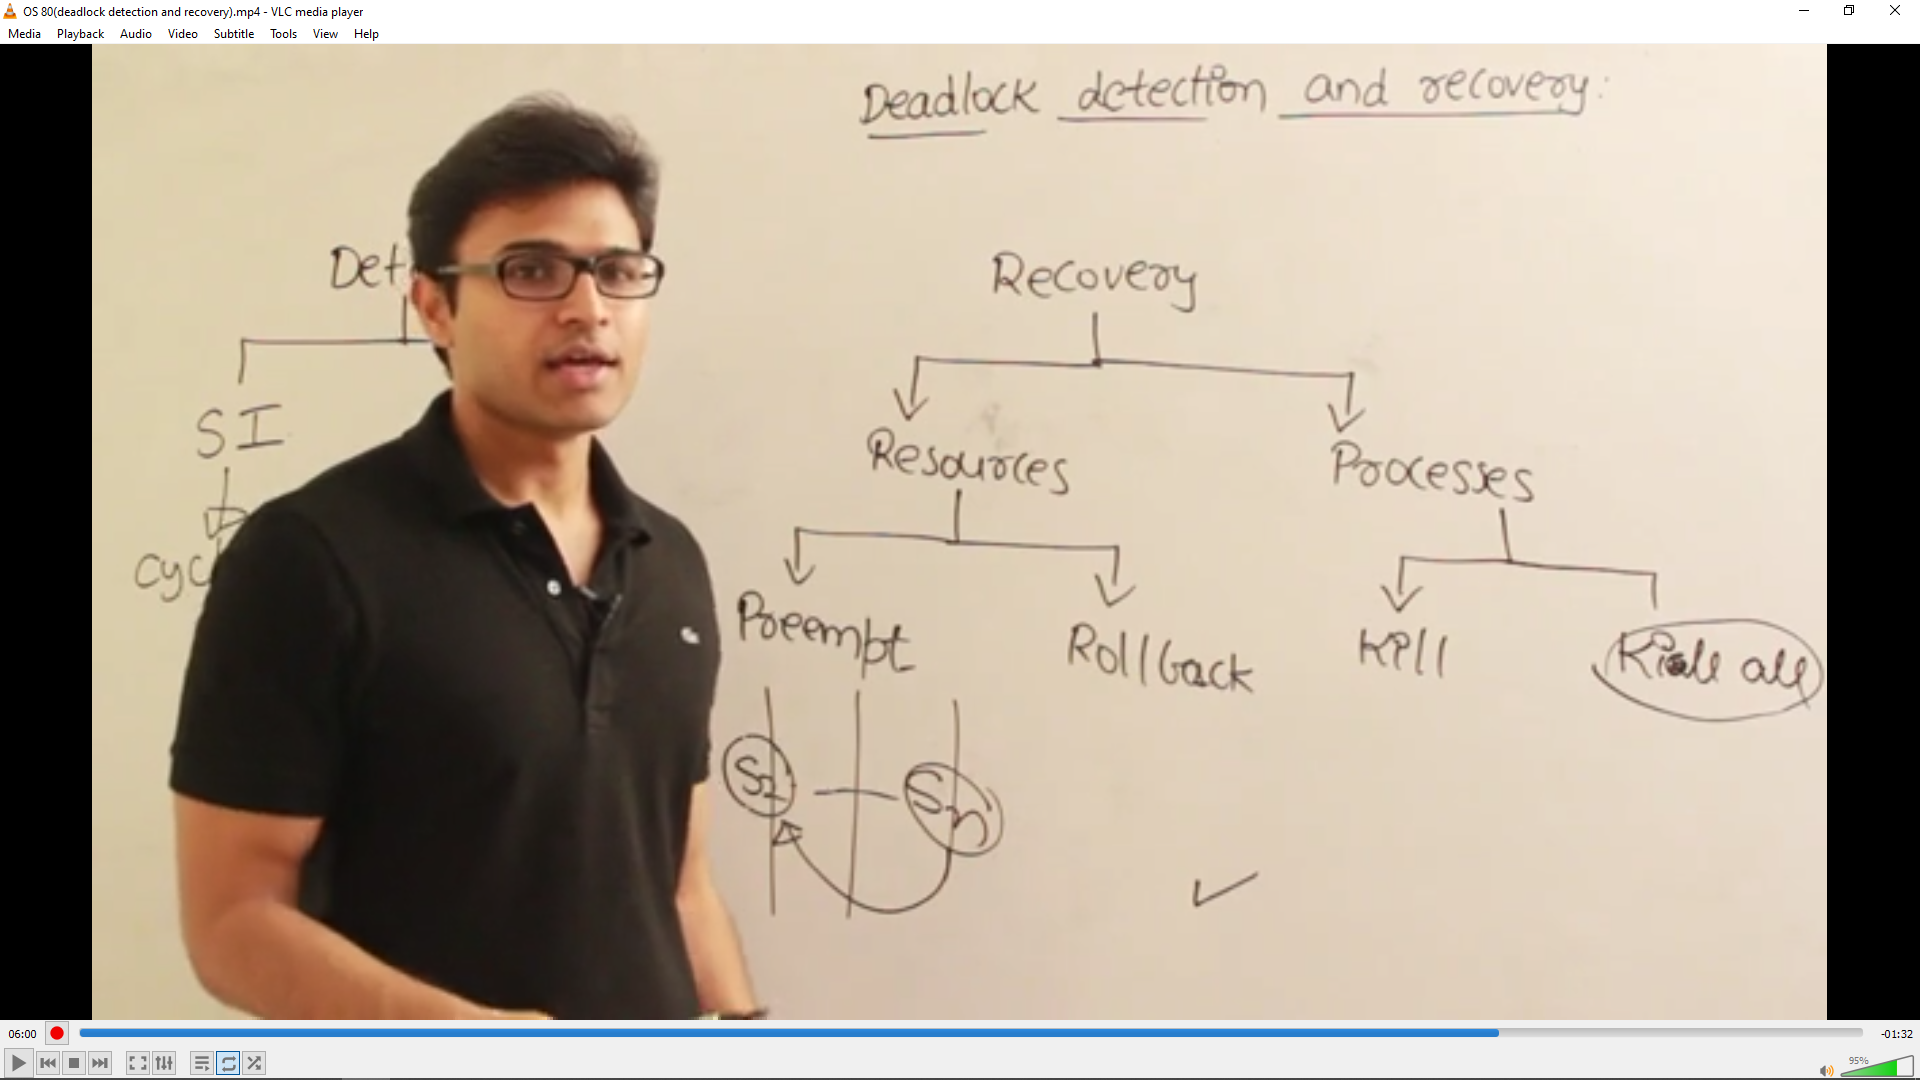 OS 80(deadlock detection and recovery).mp4 - VLC media player
Media Playback Audio Video Subtitle Tools View Help
Deadlock detection and recovery:
Det
Recovery
SI
Resources
Processes
cyc
Preempt
Rollback
Kill
Kill all
S1
Sn
06:00
-01:32
95%